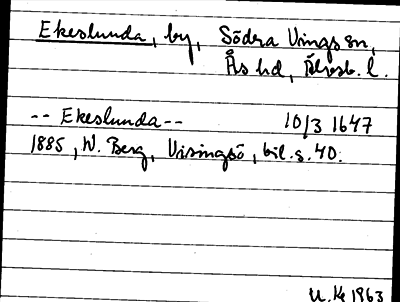 Ekeslunda, by, Södra Vings sn,
Ås hd, Älvsb. l.
-- Ekeslunda -- 10/3 1647
1885, W. Berg, Visingsö, bil. s. 40.
1963